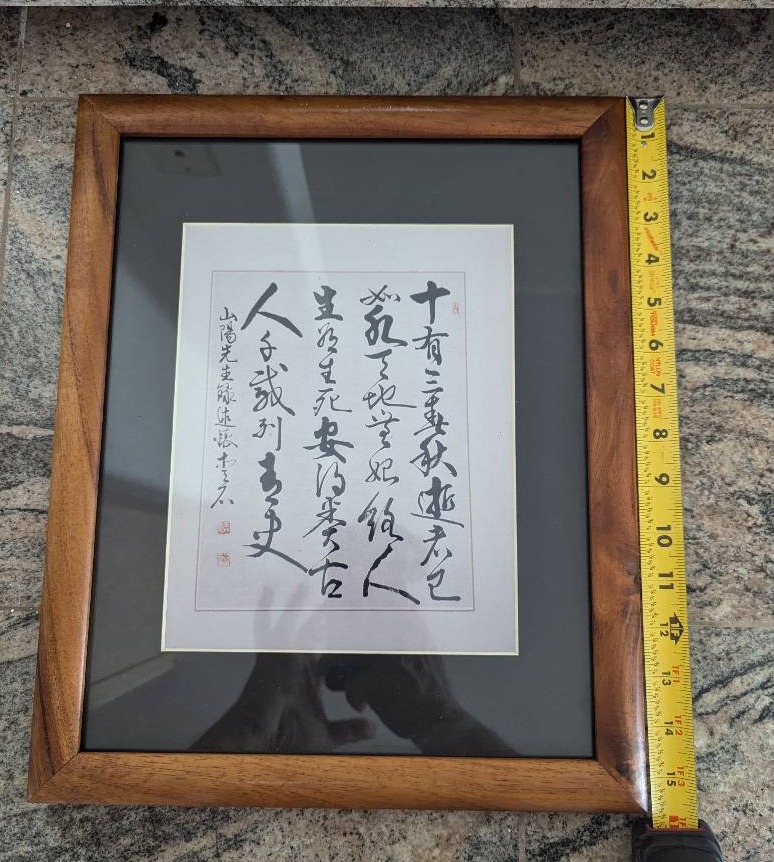 十有三春秋逝者已
如水天地無始終人
生有生死安得類古
人千載列青史
山陽先生
述懷
石
1
2
3
4
5
6
7
8
9
10
11
1F
12
1F1
13
1F2
14
1F3
15